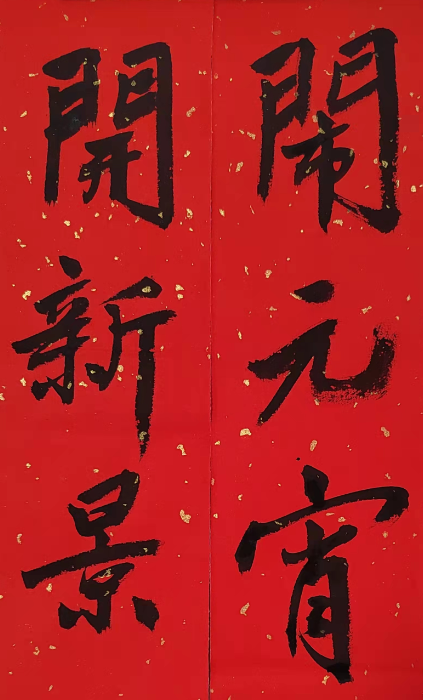 閙元宵
開新景